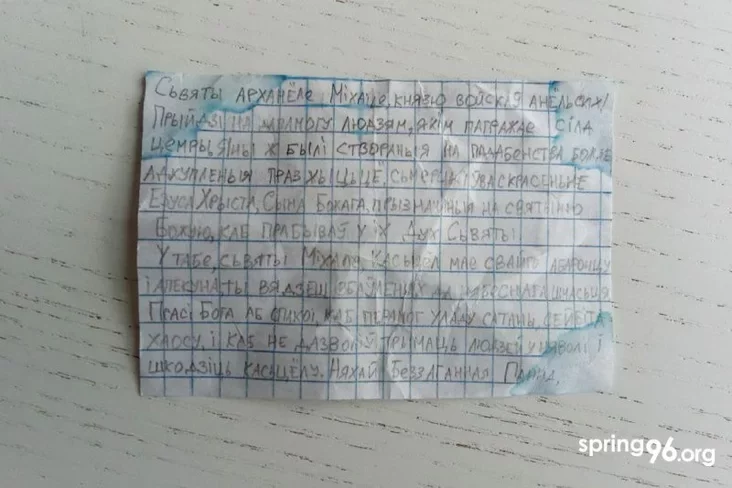 Сьвяты Арханёле Міхаіле, князю войскаў анёльскіх!
Прыйдзі на дапамогу людзям, якім пагражае сіла
цемры, яны ж былі створаныя на падабенства Божае
адкупленыя праз жыцьцё, сьмерць і ўваскрасеньне
Езуса Хрыста, Сына Божага, прызначаныя на святыню
Божую, каб прабываў у іх Дух Сьвяты
У табе, сьвяты Міхале, Касьцёл мае свайго абаронцу
і апекуна, ты вядзеш збаўленых да нябеснага шчасьця
Прасі Бога аб спакой, каб перамог уладу сатаны, сейбіта
хаосу, і каб не дазволіў трымаць людзей у няволі і
шкодзіць Касьцёлу. Няхай Беззаганная Панна,
spring96.org